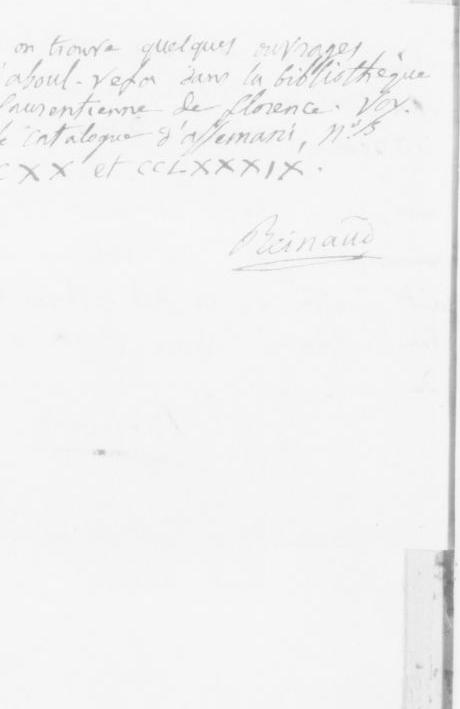 on trouve quelques ouvrages
d'aboul-vefa dans la bibliothèque
Laurentienne de florence. Voy.
le catalogue d'assemani, n.os
CCXX et CCLXXXIX.
Reinaud